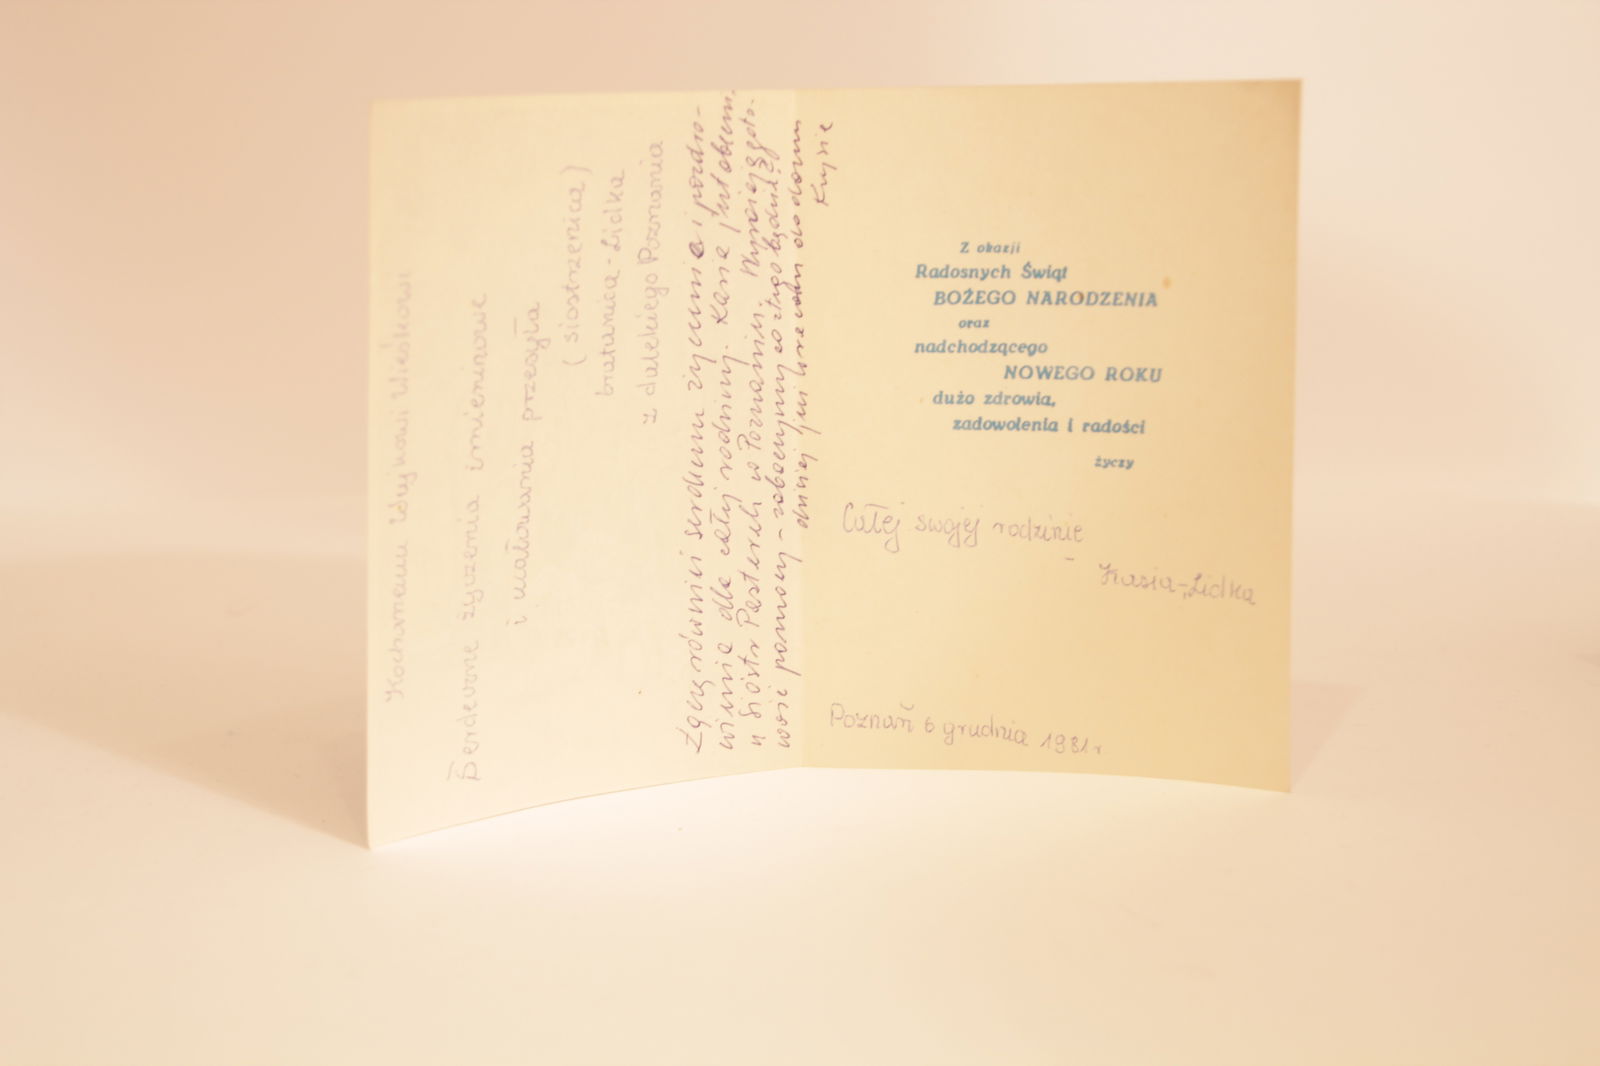 Kochanemu Wujkowi Wieśkowi
Serdeczne życzenia imieninowe
i ucałowania przesyła
(siostrzenica)
bratanica-Lidka
z dalekiego Poznania
Łączę również serdeczne życzenia i pozdro-
wienia dla całej rodziny. Kasia jest obecnie
u Sióstr Pasterek w Poznaniu.
pomocy - zobaczymy co z tego będzie?
dzisiaj już wracam do domu
Krysia
Z okazji
Radosnych Świąt
BOŻEGO NARODZENIA
oraz
nadchodzącego
NOWEGO ROKU
dużo zdrowia,
zadowolenia i radości
życzy
Całej swojej rodzinie
- Kasia-Lidka
Poznań 6 grudnia 1981r